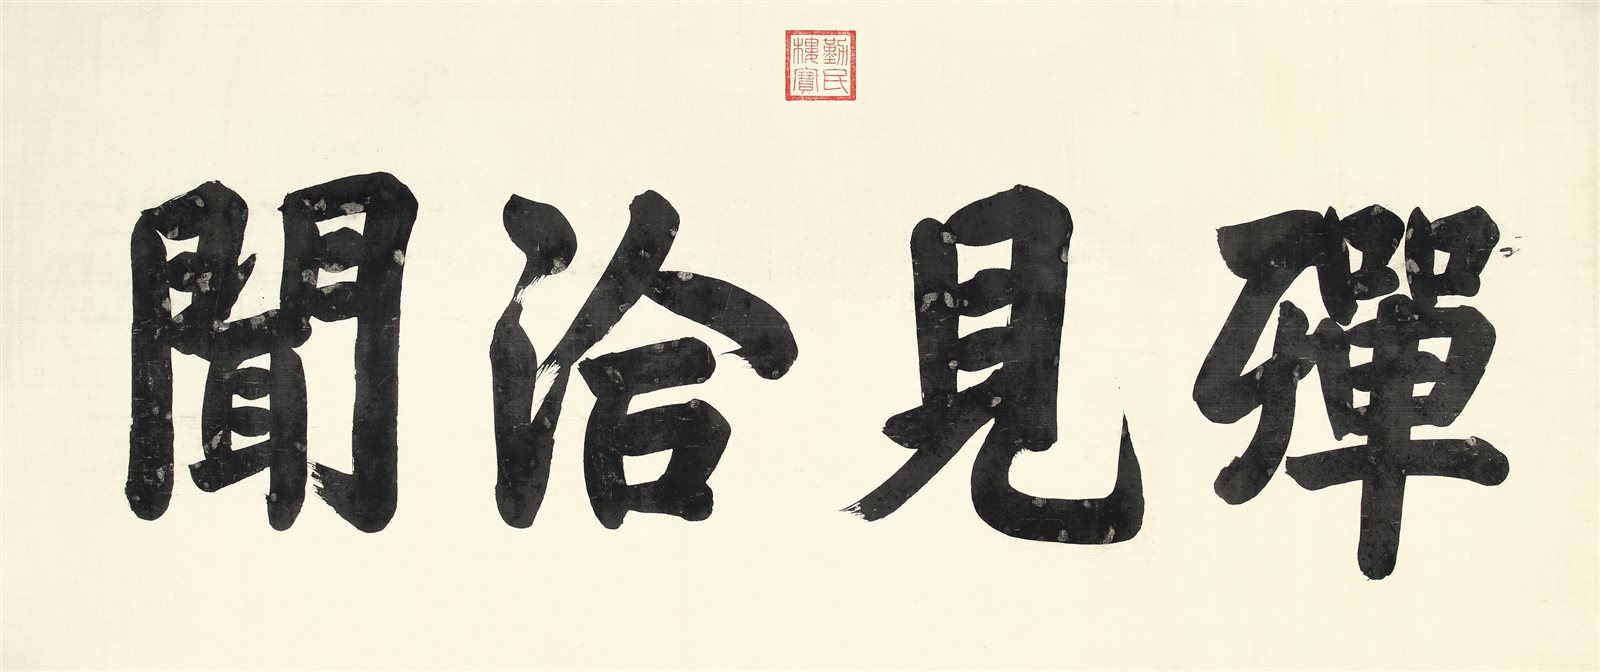 勤民
樓寶
殫見洽聞